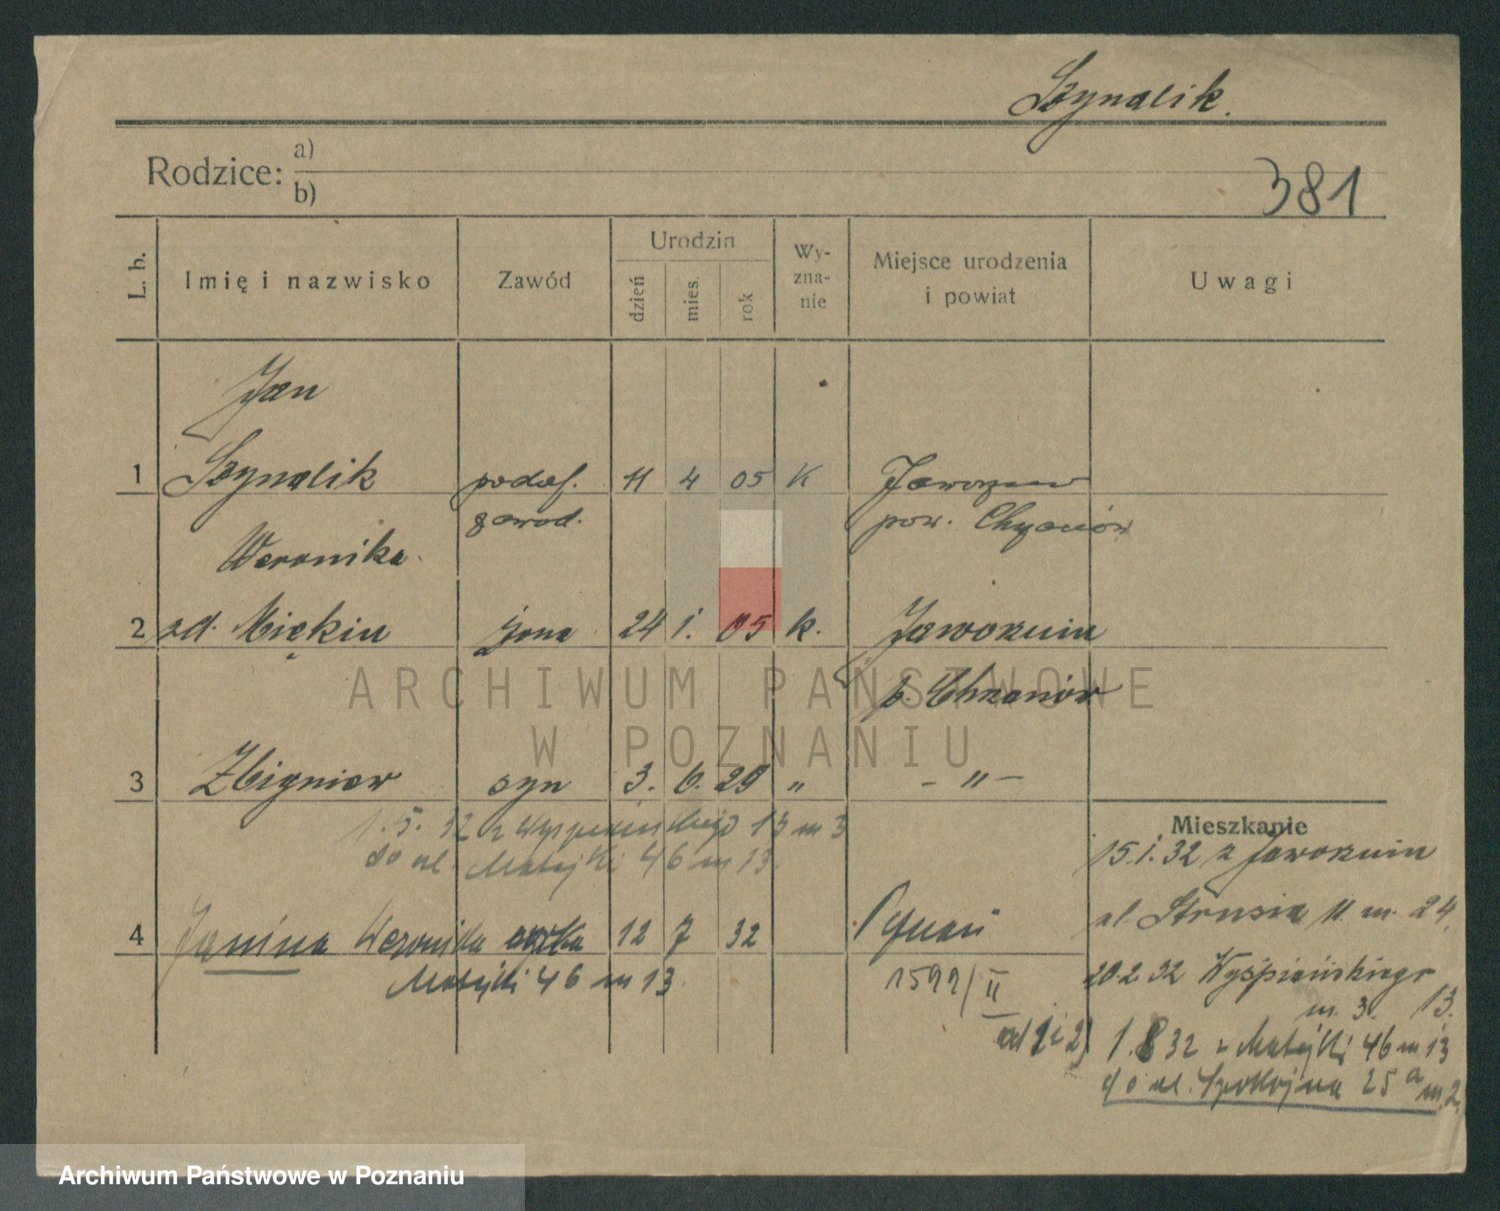 Szynalik.
Rodzice: a)
b)
381
L. b.
Imię i nazwisko
Zawód
Urodzin
dzień
mies.
rok
Wy-
zna-
nie
Miejsce urodzenia
i powiat
Uwagi
Jan
1 Szynalik podof. 11 4 05 K Jaworzno
zawod. pow. Chrzanów
Weronika
2 zd. Miękin żona 24 1. 05 k. Jaworznie
p. Chrzanów
ARCHIWUM PAŃSTWOWE
W POZNANIU
3 Zbigniew syn 3. 6. 29 " - " -
1.5.32 z Wyspiańskiego 13 m 3
do ul. Matejki 46 m 13.
Mieszkanie
15.1.32 z Jaworznin
ul. Strusia 11 m. 24.
4 Janina Weronika córka 12 7 32 Poznań
Matejki 46 m 13.
1599/II
ad 1 i 2)
20.2.32 Wyśpiańskiego
m. 3. 13.
1.8 32 z Matejki 46 m 13
do ul. Spokojna 25 a m. 2.
Archiwum Państwowe w Poznaniu